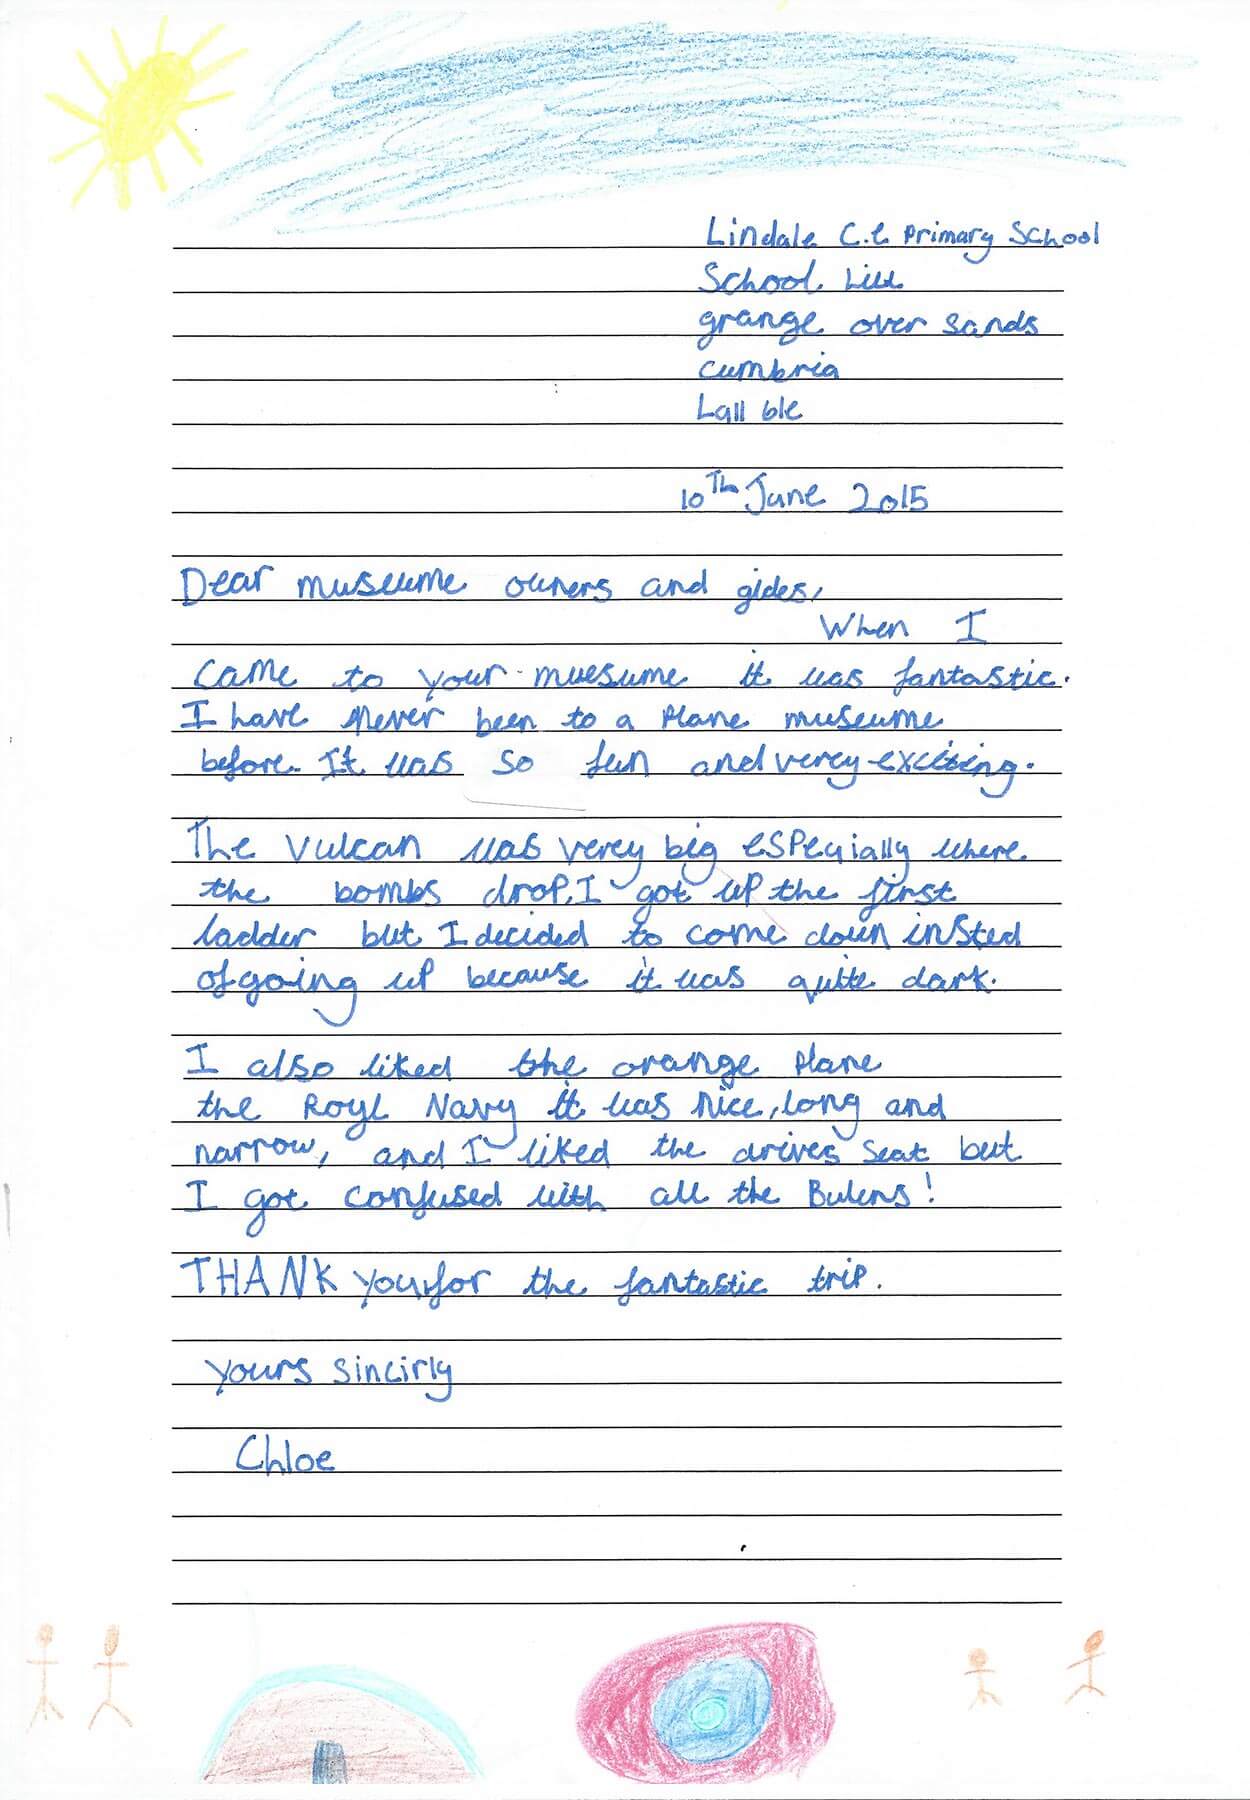 Lindale C.e Primary School
School Hill
grange over sands
cumbria
La11 6le
10Th June 2015
Dear museume owners and gides,
When I
came to your muesume it was fantastic.
I have never been to a Plane museume
before. It was so fun and verey exciting.
The Vulcan was verey big especially where
the bombs drop. I got up the first
ladder but I decided to come down insted
of going up because it was quite dark.
I also liked the orange Plane
the Royl Navy it was nice, long and
narrow, and I liked the drives seat but
I got confused with all the Butens!
THANK you for the fantastic trip.
yours sincirly
Chloe